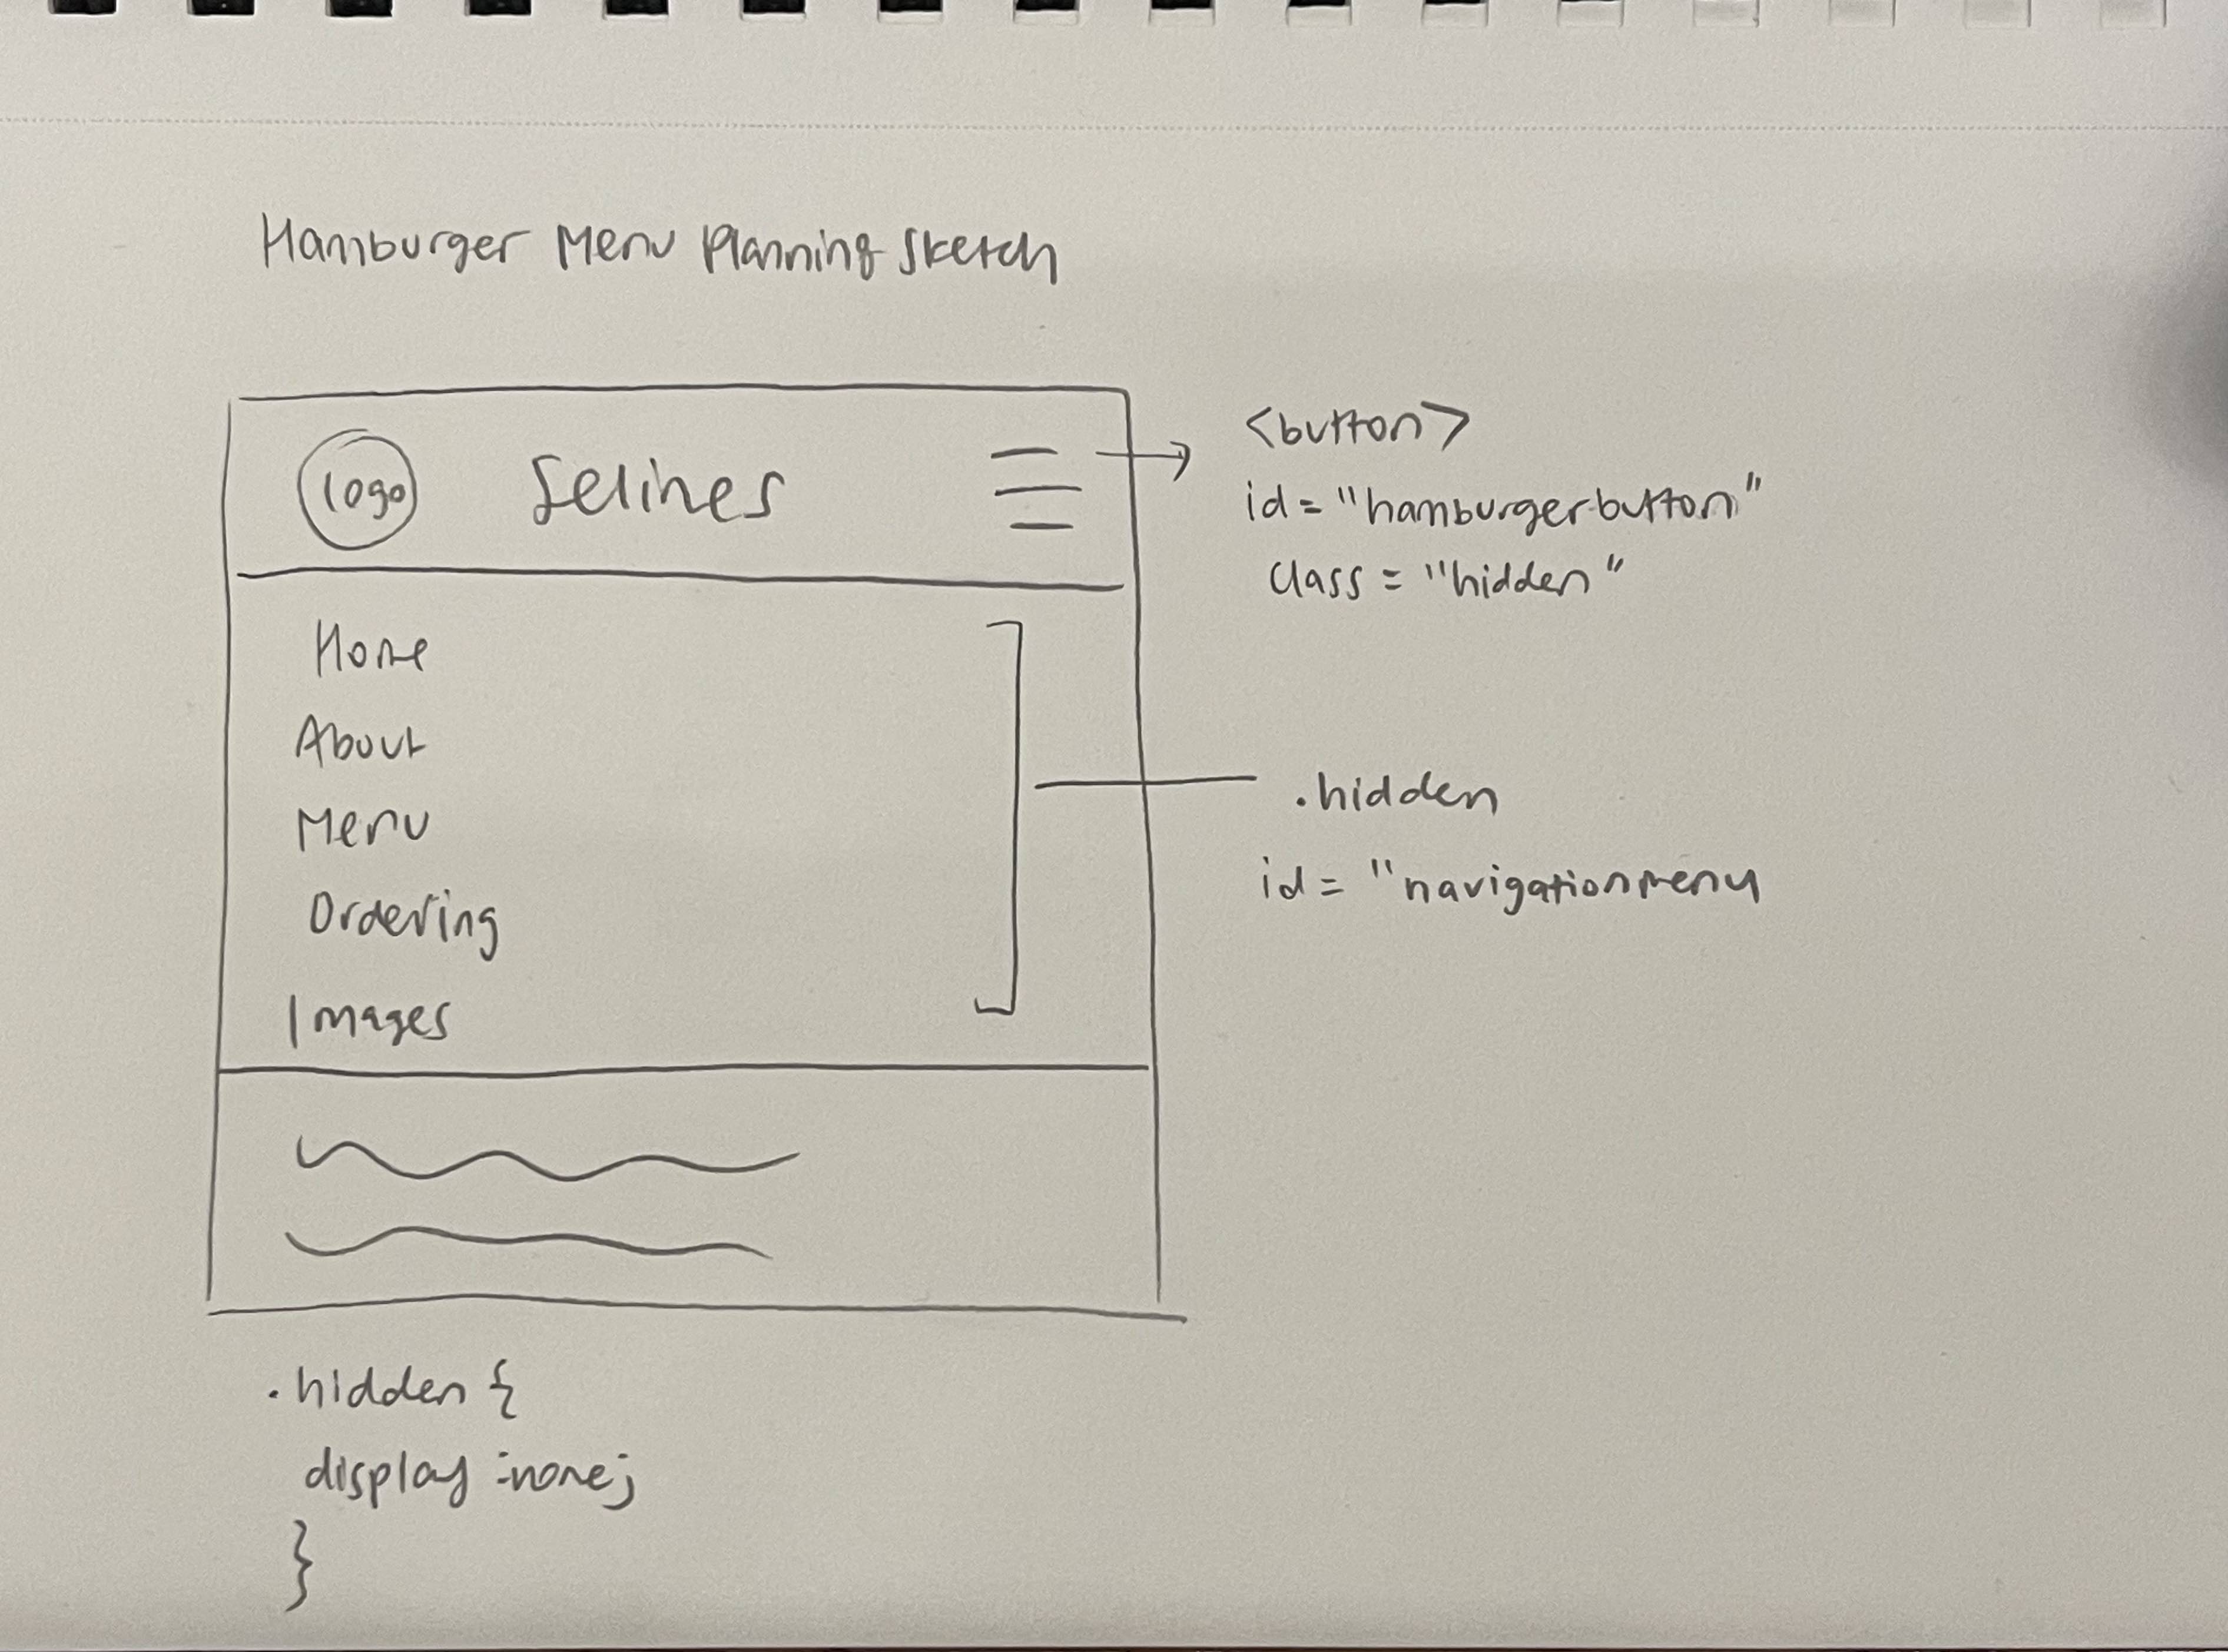 Hamburger Menu Planning Sketch
logo
Selines
<button>
id="hamburgerbutton"
class="hidden"
Home
About
Menu
Ordering
Images
.hidden
id="navigationmenu
.hidden {
display:none;
}